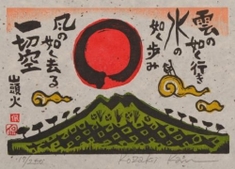 雲の如く行き
水の
如く歩み
風の如く去る
一切空
山頭火
17/250